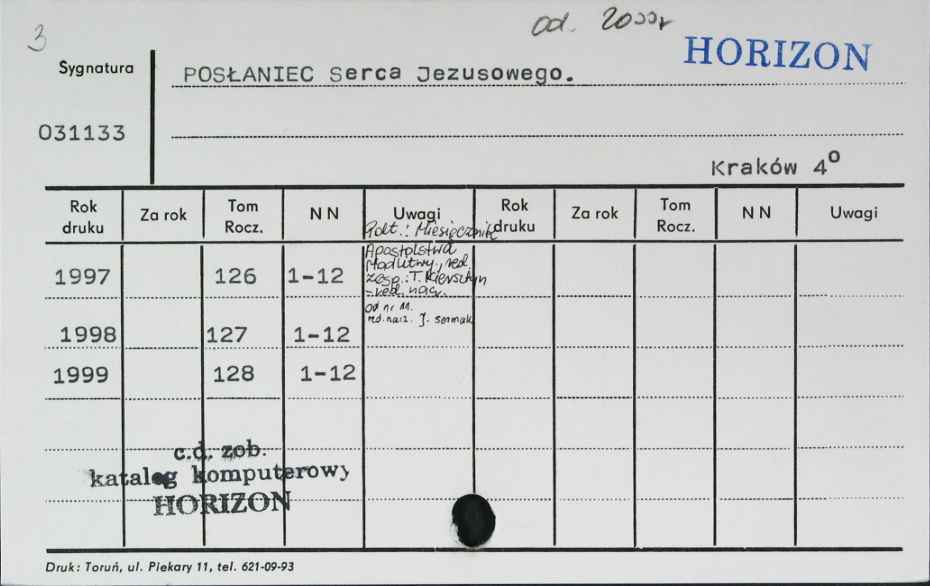 3
od. 2000r
HORIZON
Sygnatura
POSŁANIEC Serca Jezusowego.
031133
Kraków 4º
Rok druku Za rok Tom Rocz. N N Uwagi Rok druku Za rok Tom Rocz. N N Uwagi
Podt.: Miesięcznik
Apostolstwa
Modlitwy, red.
1997 126 1-12
zesp.: T. Kiersztyn
-red. nacz.
od nr 11.
red. nacz. J. Sermak
1998 127 1-12
1999 128 1-12
c.d. zob.
katalog komputerowy
HORIZON
Druk: Toruń, ul. Piekary 11, tel. 621-09-93